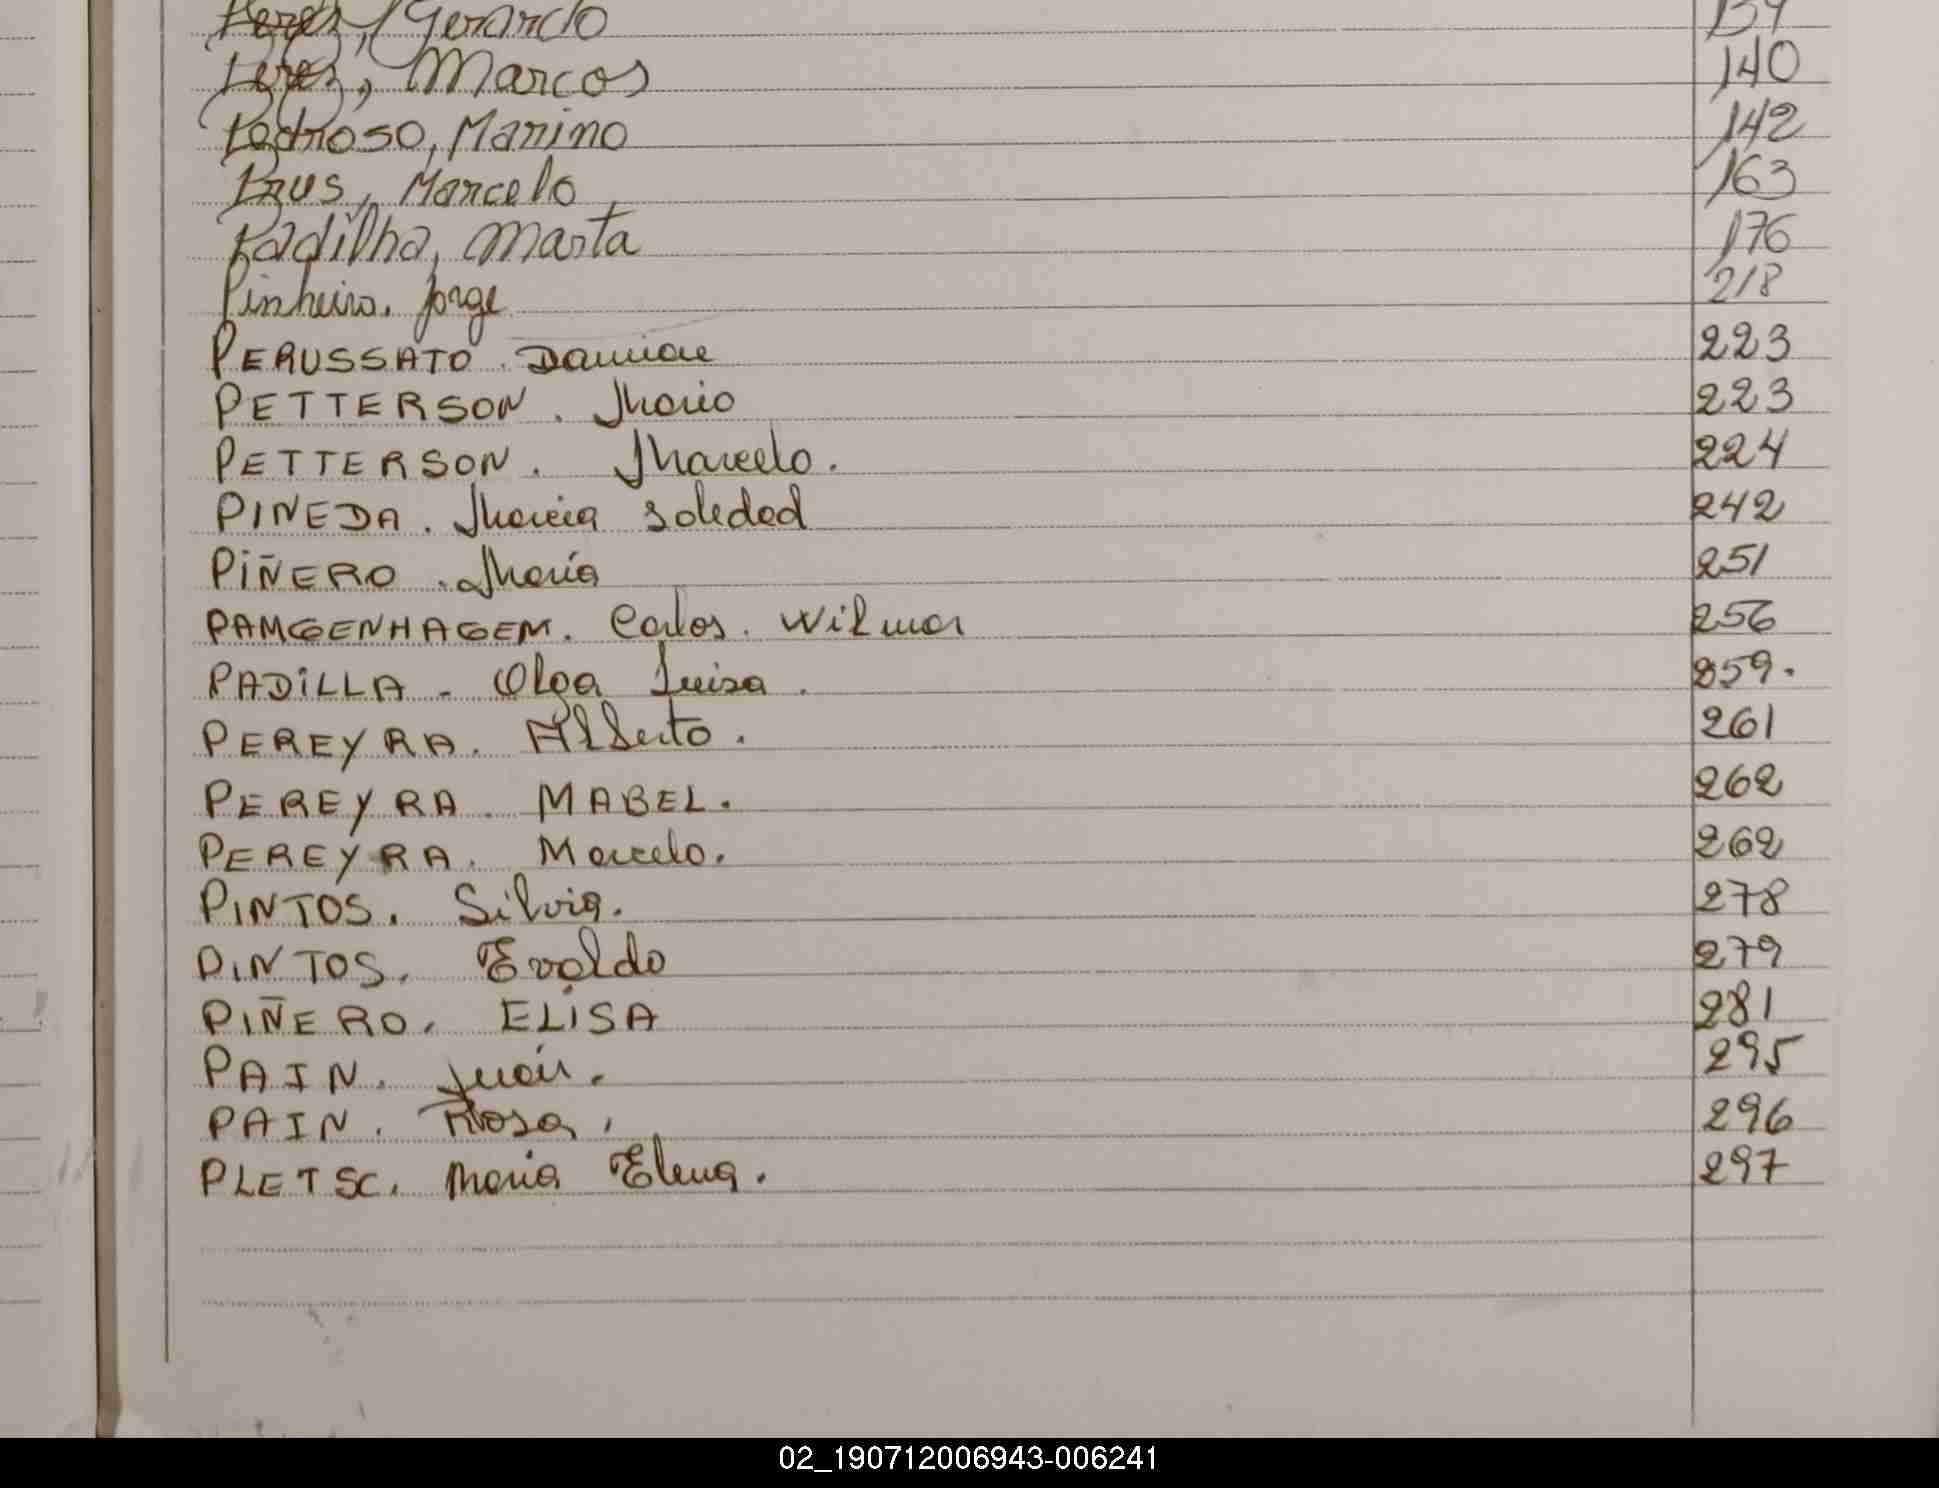 Peres, Gerardo 139
Peres, Marcos 140
Pedroso, Marino 142
Prus, Marcelo 163
Padilha, Marta 176
Pinheiro. Jorge 218
PERUSSATO. Damian 223
PETTERSON. Mario 223
PETTERSON. Marcelo. 224
PINEDA. Maria Soledad 242
PIÑERO. Maria 251
PAMGENHAGEM. Carlos. Wilmar 256
PADILLA - Olga Luisa. 259.
PEREYRA. Alberto. 261
PEREYRA. MABEL. 262
PEREYRA. Marcelo. 262
PINTOS. Silvia. 278
PINTOS. Evaldo 279
PIÑERO. ELISA 281
PAIN. Juan. 295
PAIN. Rosa. 296
PLETSC. Maria Elena. 297
02_190712006943-006241